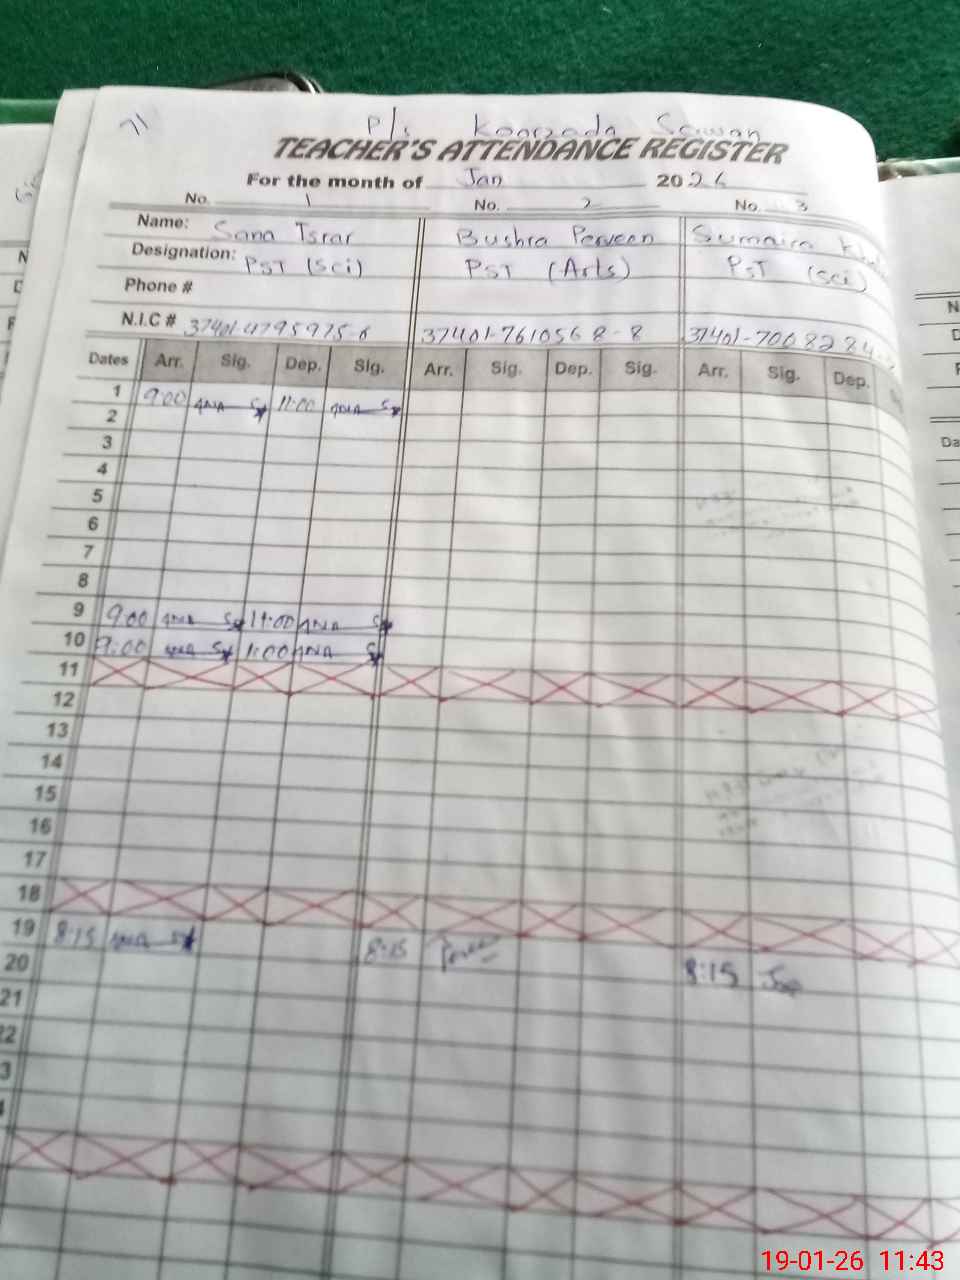 71
P/s Konrzada Sawan
TEACHER'S ATTENDANCE REGISTER
For the month of Jan 2026
No. 1 No. 2 No. 3
Name: Sana Israr Bushra Perveen Sumaira
Designation: PST (Sci) PST (Arts) PST (Sci)
Phone #
N.I.C # 37401-4795975-6 37401-7610568-8 37401-7008284-
Dates Arr. Sig. Dep. Sig. Arr. Sig. Dep. Sig. Arr. Sig. Dep.
1 9:00 11:00
2
3
4
5
6
7
8
9 9:00 11:00
10 9:00 1:00
11
12
13
14
15
16
17
18
19 8:15 8:15 8:15
20
21
22
3
19-01-26 11:43